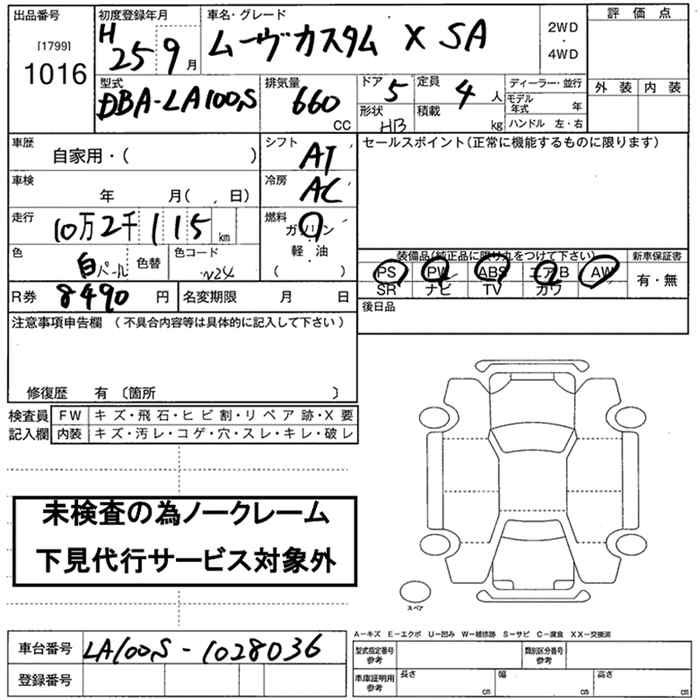 出品番号 初度登録年月 車名・グレード 評価点
[1799] 1016 H 25 9月 ムーヴカスタム X SA 2WD・4WD
外装 内装
型式 排気量 ドア 5 定員 4人 ディーラー・並行
DBA-LA100S 660 CC 形状 HB 積載 kg モデル年式 年
ハンドル 左・右
車歴 自家用・( ) シフト AT セールスポイント(正常に機能するものに限ります)
車検 年 月( . 日) 冷房 AC
走行 10万2千115km 燃料 ガソリン
軽・油
( )
色 白パール 色替 色コード W24
装備品(純正品に限り丸をつけて下さい) 新車保証書
PS PW ABS エアB AW 有・無
SR ナビ TV カワ
R券 8490円 名変期限 月 日 後日品
注意事項申告欄 (不具合内容等は具体的に記入して下さい)
修復歴 有 〔箇所 〕
検査員 FW キズ・飛石・ヒビ割・リペア跡・X要
記入欄 内装 キズ・汚レ・コゲ・穴・スレ・キレ・破レ
未検査の為ノークレーム
下見代行サービス対象外
スペア
A-キズ E-エクボ U-凹み W-補修跡 S-サビ C-腐食 XX-交換済
車台番号 LA100S-1028036 型式指定番号 参考 類別区分番号 参考
登録番号 車庫証明用 参考 長さ cm 幅 cm 高さ cm